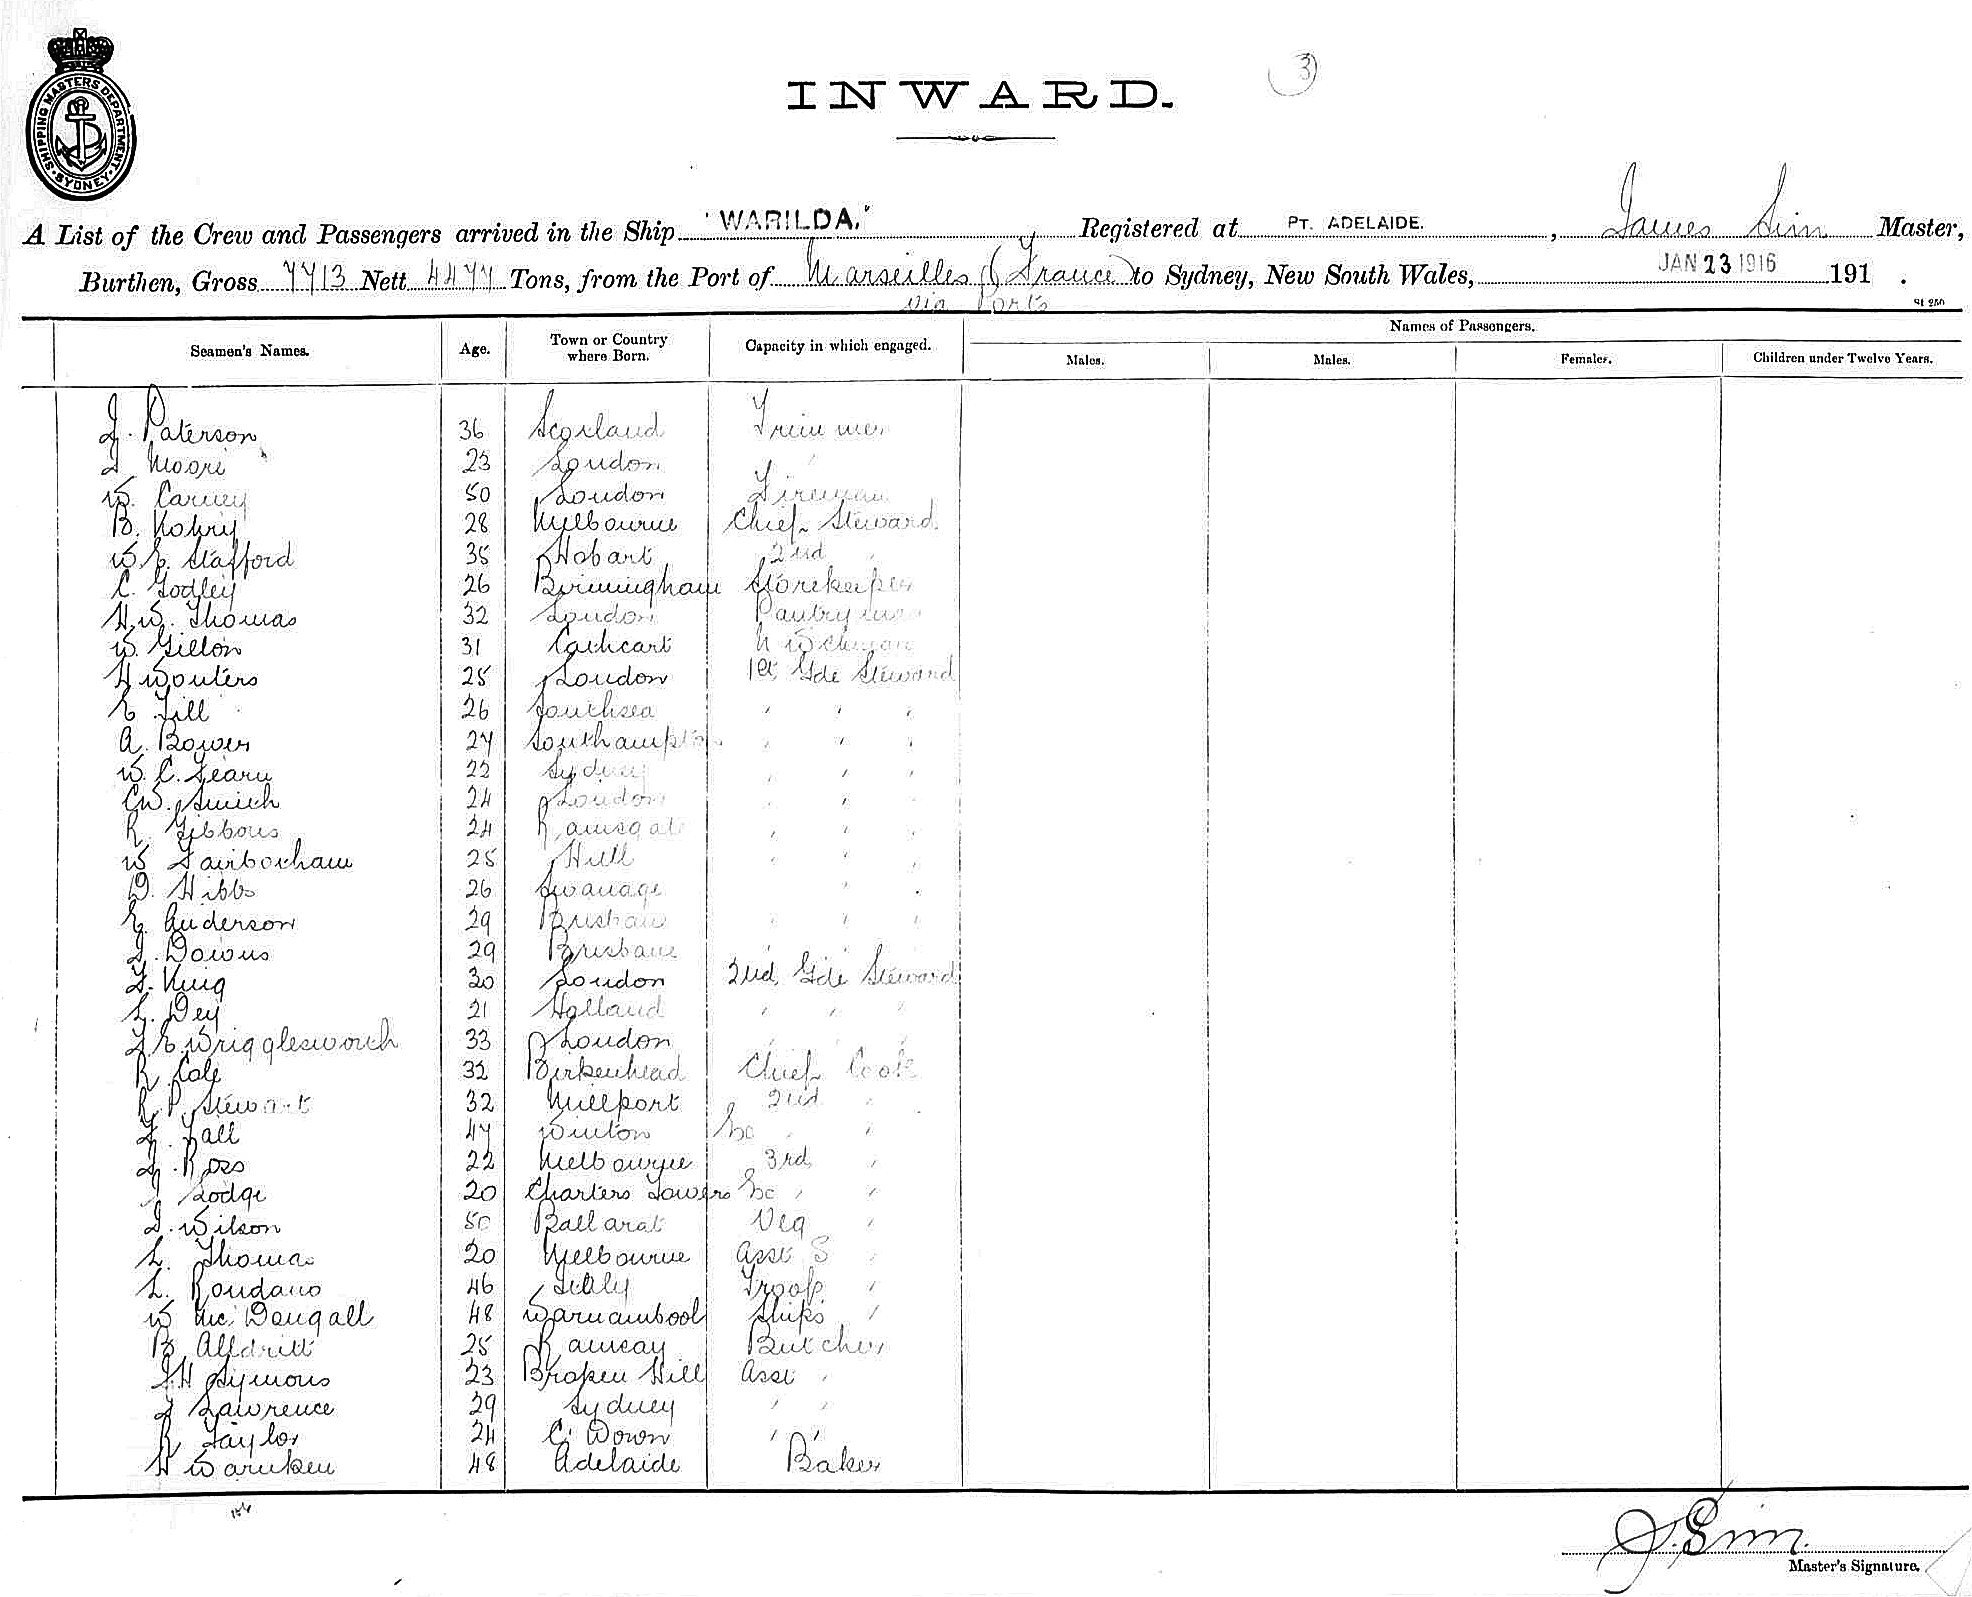 SHIPPING MASTERS DEPARTMENT
SYDNEY
3
INWARD.
A List of the Crew and Passengers arrived in the Ship "WARILDA." Registered at PT. ADELAIDE. , James Sim Master,
Burthen, Gross 7713 Nett 4477 Tons, from the Port of Marseilles (France) to Sydney, New South Wales, JAN 23 1916 191 .
via Ports
St 250
Names of Passengers.
Seamen's Names. Age. Town or Country where Born. Capacity in which engaged. Males. Males. Females. Children under Twelve Years.
J. Paterson 36 Scotland Trimmer
Moore 23 London "
W. Carney 50 London Fireman
B. 28 Melbourne Chief Steward
W. E. Stafford 35 Hobart 2nd "
C. Godley 26 Birmingham Storekeeper
H. W. Thomas 32 London Pantryman
W. Gillon 31 Cathcart
H Wouters 25 London 1st Gde Steward
E. Till 26 Southsea " " "
A. Bower 27 Southampton " " "
W. C. 22 Sydney " " "
C W. Smith 24 London " " "
R. Gibbons 24 Ramsgate " " "
W 25 Hull " " "
D. Hibbs 26 Swanage " "
E. Anderson 29 Brisbane " " "
J. Downs 29 Brisbane " " "
King 30 London 2nd Gde Steward
L. Dey 21 Holland " " "
E Wrigglesworth 33 London " " "
R. Cole 32 Birkenhead Chief Cook
R. P. Stewart 32 Millport 2nd "
47 Winton Do " "
J. Ross 22 Melbourne 3rd "
J Lodge 20 Charters Towers Do " "
J. Wilson 50 Ballarat Veg "
L. Thomas 20 Melbourne Asst S "
L. Rondano 46 Italy Troop "
W Mc Dougall 48 Warnambool Ships "
B. Alldritt 25 Ramsay Butcher
J H Symons 23 Broken Hill Asst "
J Lawrence 29 Sydney " "
R Taylor 24 C. Down " "
H Warnken 48 Adelaide Baker
J. Sim
Master's Signature.